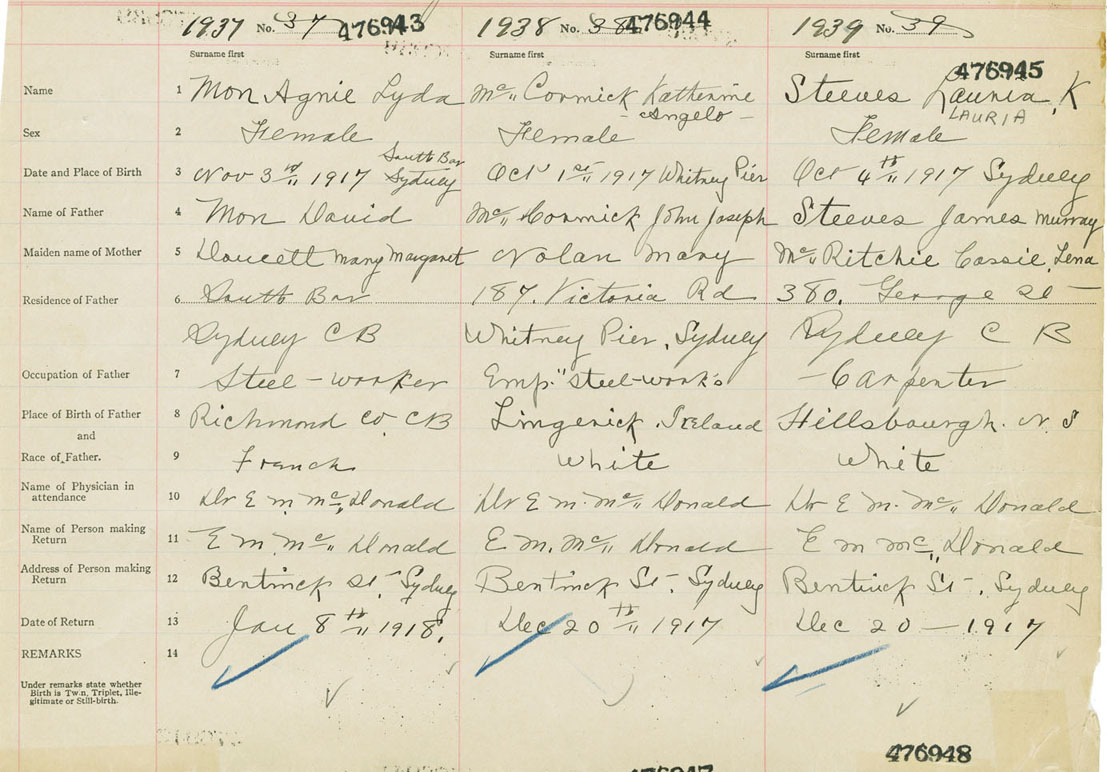 1937 No. 37 476943 1938 No. 38 476944 1939 No. 39
Surname first Surname first Surname first
476945
Name 1 Mon Agnie Lyda Mc Cormick Katherine Steeves Lauria K
- Angelo - LAURIA
Sex 2 Female Female Female
South Bar
Date and Place of Birth 3 Nov 3rd 1917 Sydney Oct 1st 1917 Whitney Pier Oct 4th 1917 Sydney
Name of Father 4 Mon David Mc Cormick John Joseph Steeves James Murray
Maiden name of Mother 5 Doucett Mary Margaret Nolan Mary Mc Ritchie Cassie Lena
Residence of Father 6 South Bar 187. Victoria Rd 380. George St
Sydney C B Whitney Pier, Sydney Sydney C B
Occupation of Father 7 Steel-worker Emp. "steel-work's - Carpenter
Place of Birth of Father 8 Richmond Co. CB Limgerick. Ireland Hillsbourgh. N. S
and
Race of Father. 9 French White White
Name of Physician in
attendance 10 Dr E M Mc Donald Dr E M. Mc Donald Dr E M. Mc Donald
Name of Person making
Return 11 E M Mc Donald E M. Mc Donald E M Mc Donald
Address of Person making
Return 12 Bentinck St, Sydney Bentinck St, Sydney Bentinck St, Sydney
Date of Return 13 Jan 8th 1918. Dec 20th 1917 Dec 20 — 1917
REMARKS 14
Under remarks state whether
Birth is Twin, Triplet, Ille-
gitimate or Still-birth.
476948
476947